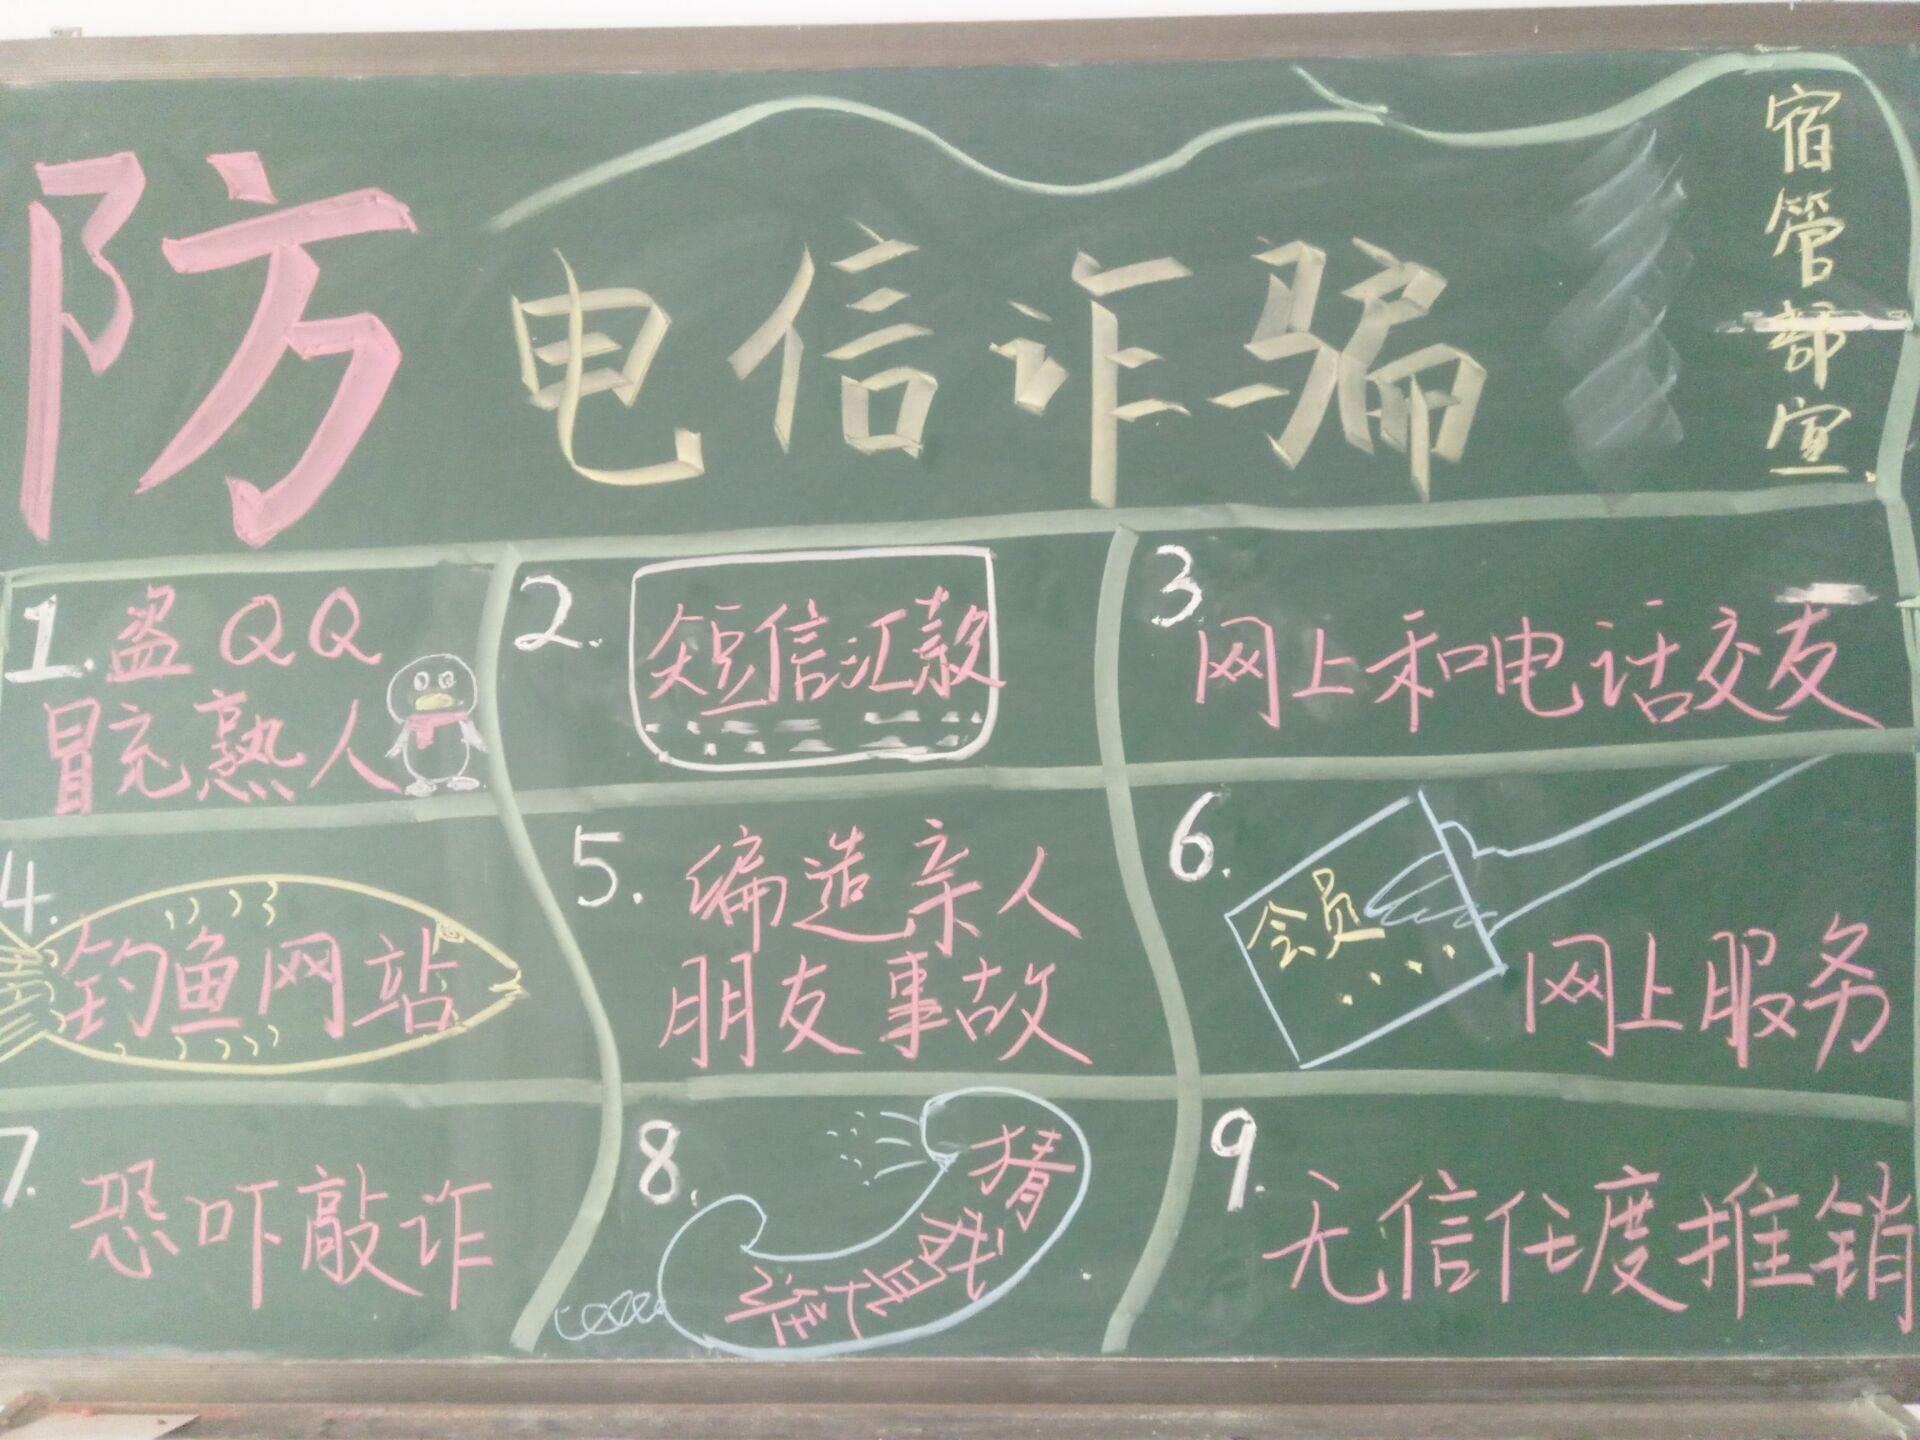 防电信诈骗
宿管部宣
1.盗QQ
冒充熟人
2.
短信汇款
3.
网上和电话交友
4.
钓鱼网站
5.
编造亲人
朋友事故
6.
会员...
网上服务
7.
恐吓敲诈
8.
猜我是谁
9.
无信任度推销